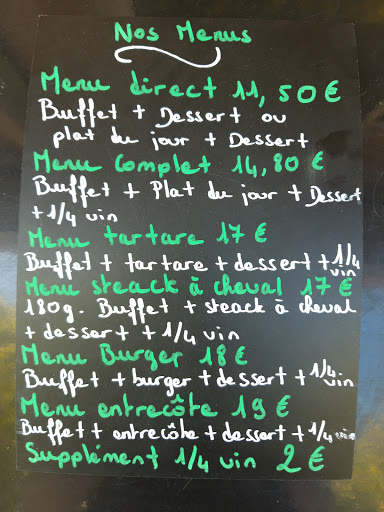 Nos Menus
Menu direct 11,50 €
Buffet + Dessert ou
plat du jour + Dessert
Menu Complet 14,80 €
Buffet + Plat du jour + Dessert
+ 1/4 vin
Menu tartare 17 €
Buffet + tartare + dessert + 1/4 vin
Menu steack à cheval 17 €
180g. Buffet + steack à cheval
+ dessert + 1/4 vin
Menu Burger 18 €
Buffet + burger + dessert + 1/4 vin
Menu entrecôte 19 €
Buffet + entrecôte + dessert + 1/4 vin
Supplément 1/4 vin 2 €